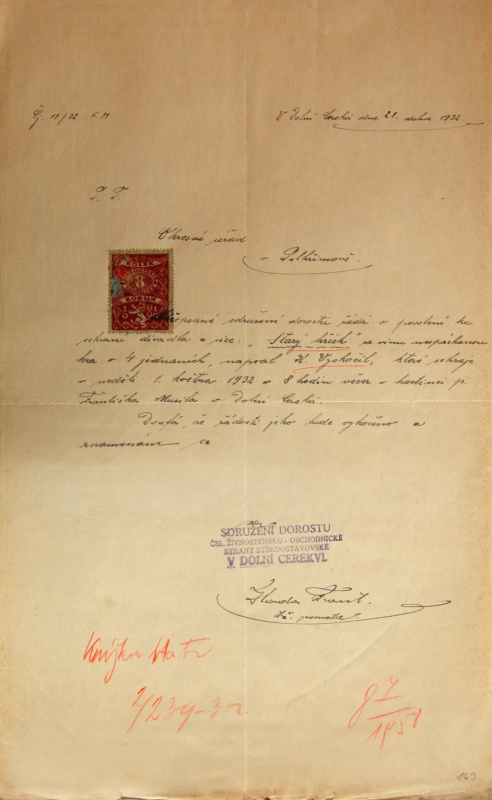 Čj. 11/32
V Dolní Cerekvi dne 21. dubna 1932
P. T.
Okresní úřad
v Pelhřimově.
KOLEK
8
KORUN
Nížepsané sdružení dorostu žádá o povolení ku
sehrání divadla a sice: „Starý hřích" za vinu nespáchanou
hra o 4 jednáních, napsal K. Vyskočil, které sehraje
v neděli 1. května 1932 o 8 hodin večer v hostinci p.
Františka Musila v Dolní Cerekvi.
Doufá, že žádosti jeho bude vyhověno a
znamenáme se
SDRUŽENÍ DOROSTU
ČSL. ŽIVNOSTENSKO - OBCHODNICKÉ
STRANY STŘEDOSTAVOVSKÉ
V DOLNÍ CEREKVI.
Frant.
2/239-32
87
163